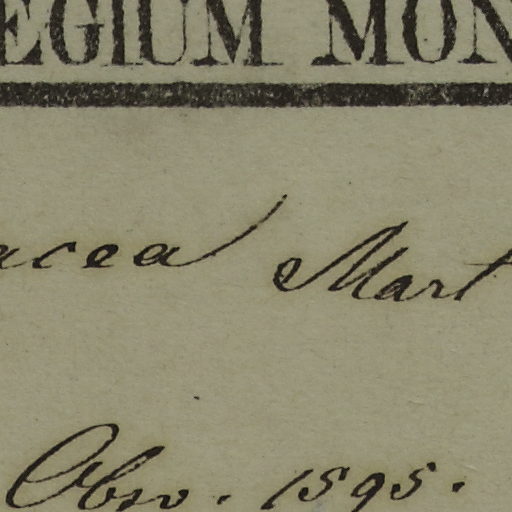 EGIUM MON
acea Mart
Obsv. 1595.